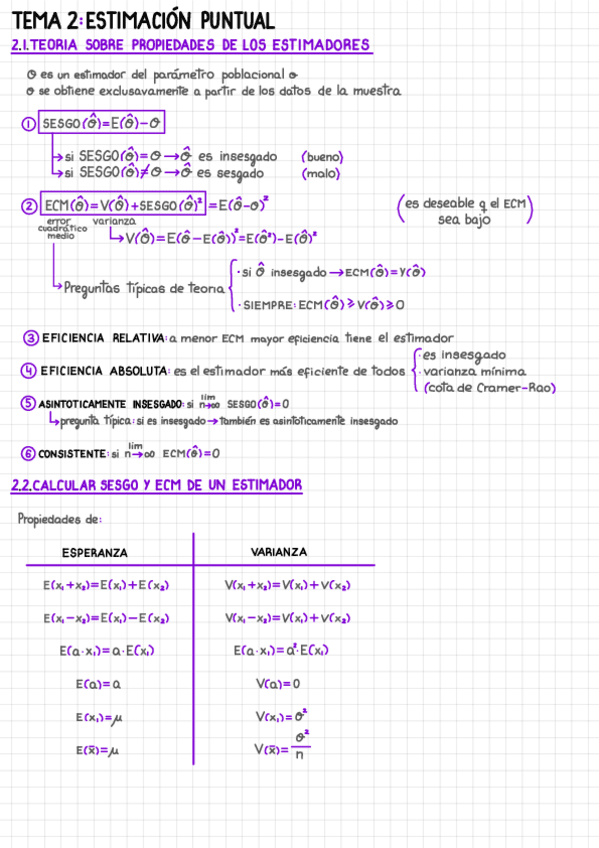 TEMA 2: ESTIMACIÓN PUNTUAL
2.1. TEORIA SOBRE PROPIEDADES DE LOS ESTIMADORES
Θ es un estimador del parámetro poblacional Θ
Θ se obtiene exclusavamente a partir de los datos de la muestra
① SESGO(Θ̂)=E(Θ̂)-Θ
si SESGO(Θ̂)=0 → Θ̂ es insesgado (bueno)
si SESGO(Θ̂)≠0 → Θ̂ es sesgado (malo)
② ECM(Θ̂)=V(Θ̂)+SESGO(Θ̂)² =E(Θ̂-Θ)² (es deseable q el ECM sea bajo)
error cuadrático medio
varianza
V(Θ̂)=E(Θ̂-E(Θ̂))²=E(Θ̂²)-E(Θ̂)²
Preguntas típicas de teoria
· si Θ̂ insesgado → ECM(Θ̂)=V(Θ̂)
· SIEMPRE: ECM(Θ̂)≥V(Θ̂)≥0
③ EFICIENCIA RELATIVA: a menor ECM mayor eficiencia tiene el estimador
④ EFICIENCIA ABSOLUTA: es el estimador más eficiente de todos
· es insesgado
· varianza mínima
(cota de Cramer-Rao)
⑤ ASINTOTICAMENTE INSESGADO: si lim n→∞ SESGO(Θ̂)=0
pregunta típica: si es insesgado → también es asintóticamente insesgado
⑥ CONSISTENTE: si lim n→∞ ECM(Θ̂)=0
2.2. CALCULAR SESGO Y ECM DE UN ESTIMADOR
Propiedades de:
ESPERANZA VARIANZA
E(x₁+x₂)=E(x₁)+E(x₂) V(x₁+x₂)=V(x₁)+V(x₂)
E(x₁-x₂)=E(x₁)-E(x₂) V(x₁-x₂)=V(x₁)+V(x₂)
E(a·x₁)=a·E(x₁) E(a·x₁)=a²·E(x₁)
E(a)=a V(a)=0
E(x₁)=μ V(x₁)=σ²
E(x̄)=μ V(x̄)=σ²/n